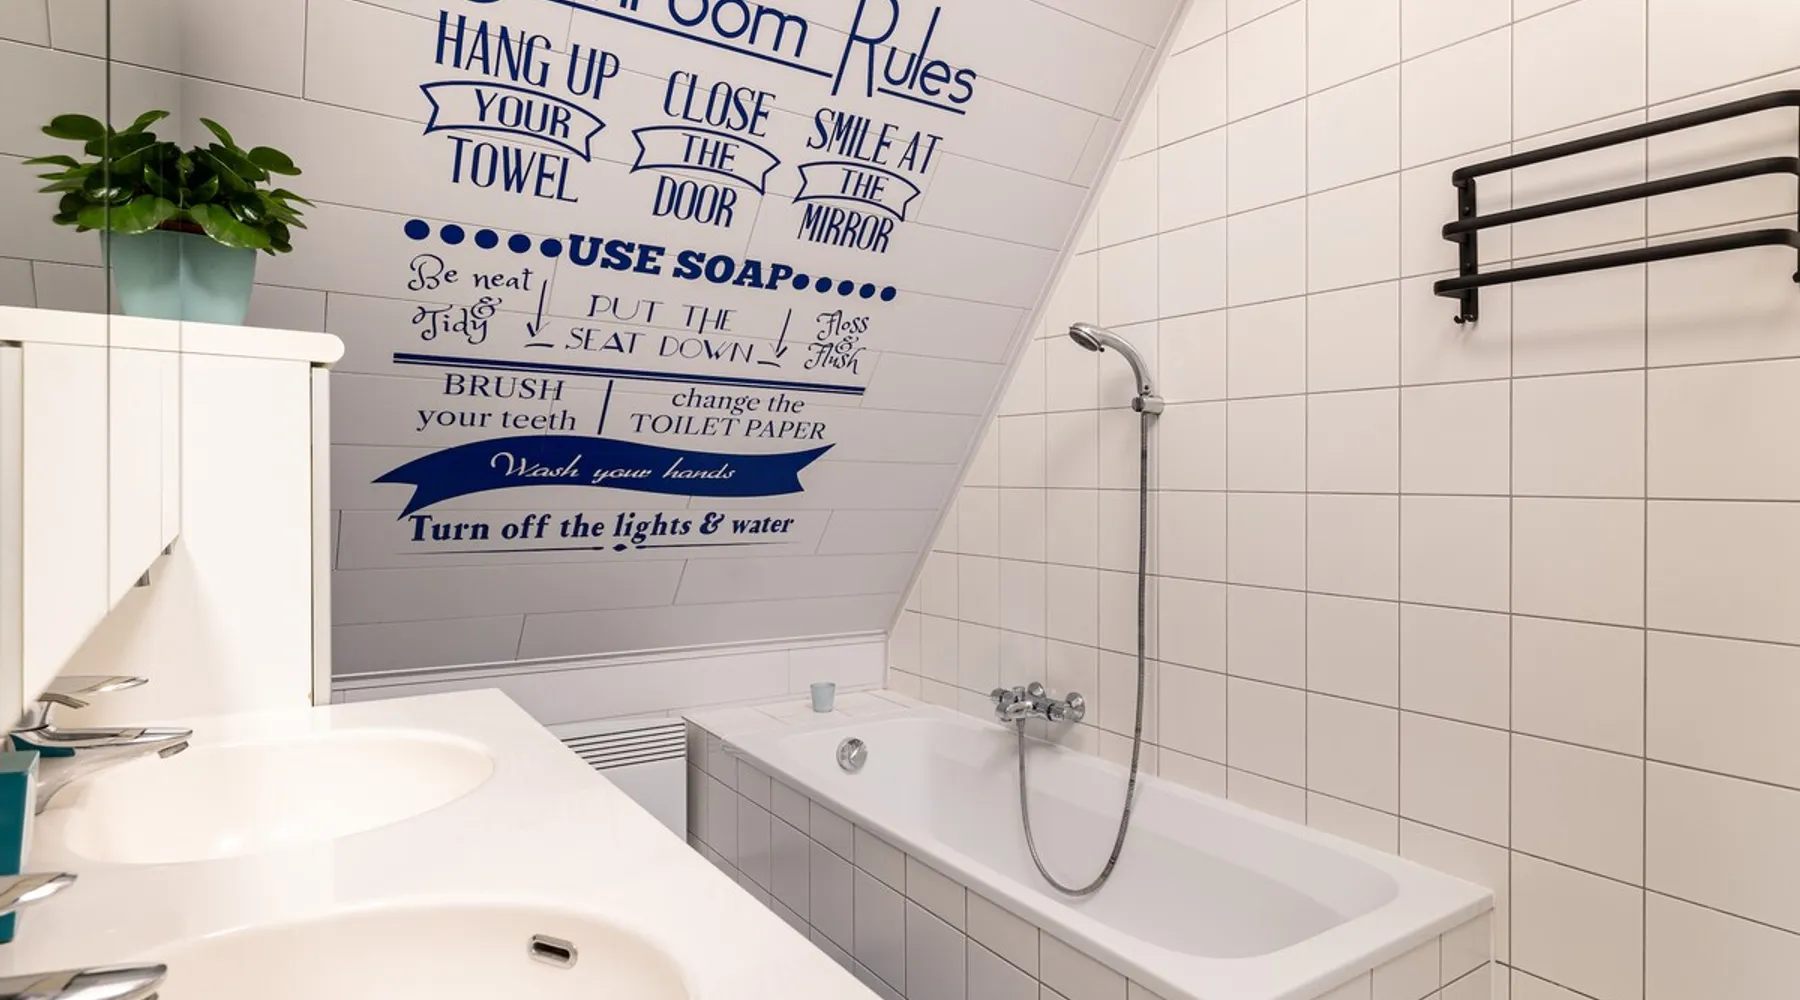 Bathroom Rules
HANG UP
YOUR
TOWEL
CLOSE
THE
DOOR
SMILE AT
THE
MIRROR
USE SOAP
Be neat
&
Tidy
PUT THE
SEAT DOWN
Floss
&
Flush
BRUSH
your teeth
change the
TOILET PAPER
Wash your hands
Turn off the lights & water